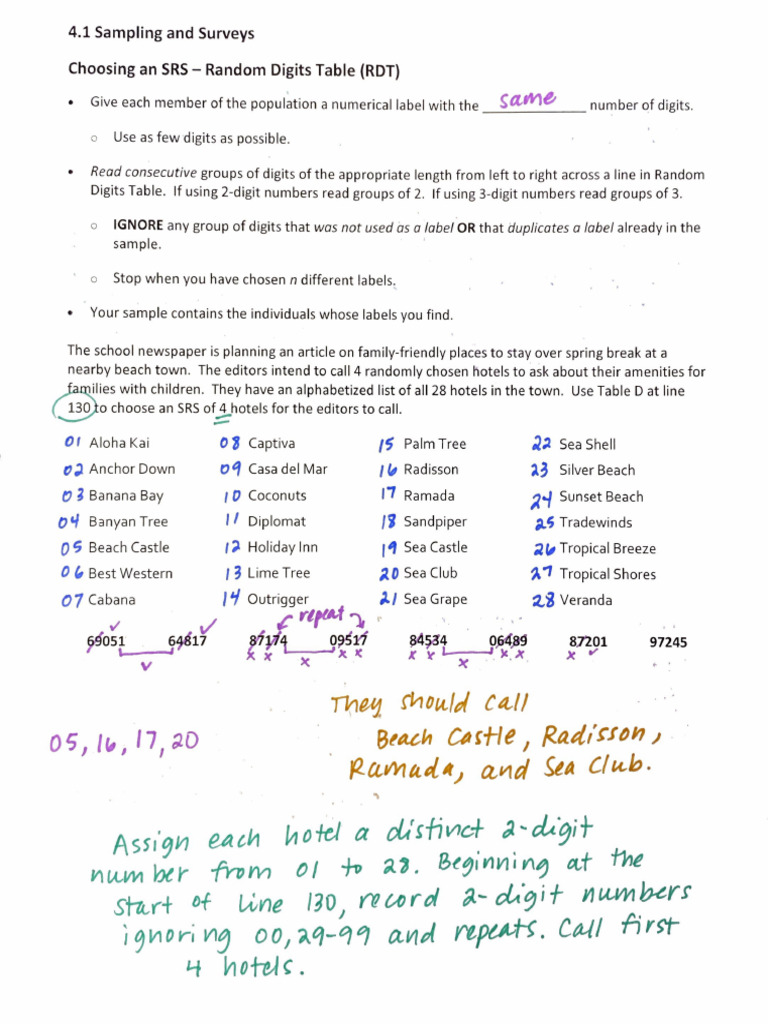 4.1 Sampling and Surveys
Choosing an SRS – Random Digits Table (RDT)
• Give each member of the population a numerical label with the same number of digits.
o Use as few digits as possible.
• Read consecutive groups of digits of the appropriate length from left to right across a line in Random
Digits Table. If using 2-digit numbers read groups of 2. If using 3-digit numbers read groups of 3.
o IGNORE any group of digits that was not used as a label OR that duplicates a label already in the
sample.
o Stop when you have chosen n different labels.
• Your sample contains the individuals whose labels you find.
The school newspaper is planning an article on family-friendly places to stay over spring break at a
nearby beach town. The editors intend to call 4 randomly chosen hotels to ask about their amenities for
families with children. They have an alphabetized list of all 28 hotels in the town. Use Table D at line
130 to choose an SRS of 4 hotels for the editors to call.
01 Aloha Kai 08 Captiva 15 Palm Tree 22 Sea Shell
02 Anchor Down 09 Casa del Mar 16 Radisson 23 Silver Beach
03 Banana Bay 10 Coconuts 17 Ramada 24 Sunset Beach
04 Banyan Tree 11 Diplomat 18 Sandpiper 25 Tradewinds
05 Beach Castle 12 Holiday Inn 19 Sea Castle 26 Tropical Breeze
06 Best Western 13 Lime Tree 20 Sea Club 27 Tropical Shores
07 Cabana 14 Outrigger 21 Sea Grape 28 Veranda
repeat
69051 64817 87174 09517 84534 06489 87201 97245
They should call
05, 16, 17, 20 Beach Castle, Radisson,
Ramada, and Sea Club.
Assign each hotel a distinct 2-digit
number from 01 to 28. Beginning at the
start of line 130, record 2-digit numbers
ignoring 00, 29-99 and repeats. Call first
4 hotels.